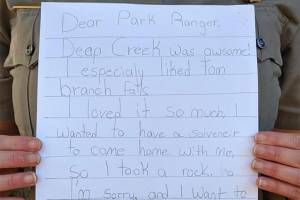 Dear Park Ranger,
Deep Creek was awsome!
I especialy liked Tom
branch falls
I loved it so much, I
wanted to have a soiveneir
to come home with me,
so I took a rock.
I'm sorry, and I want to